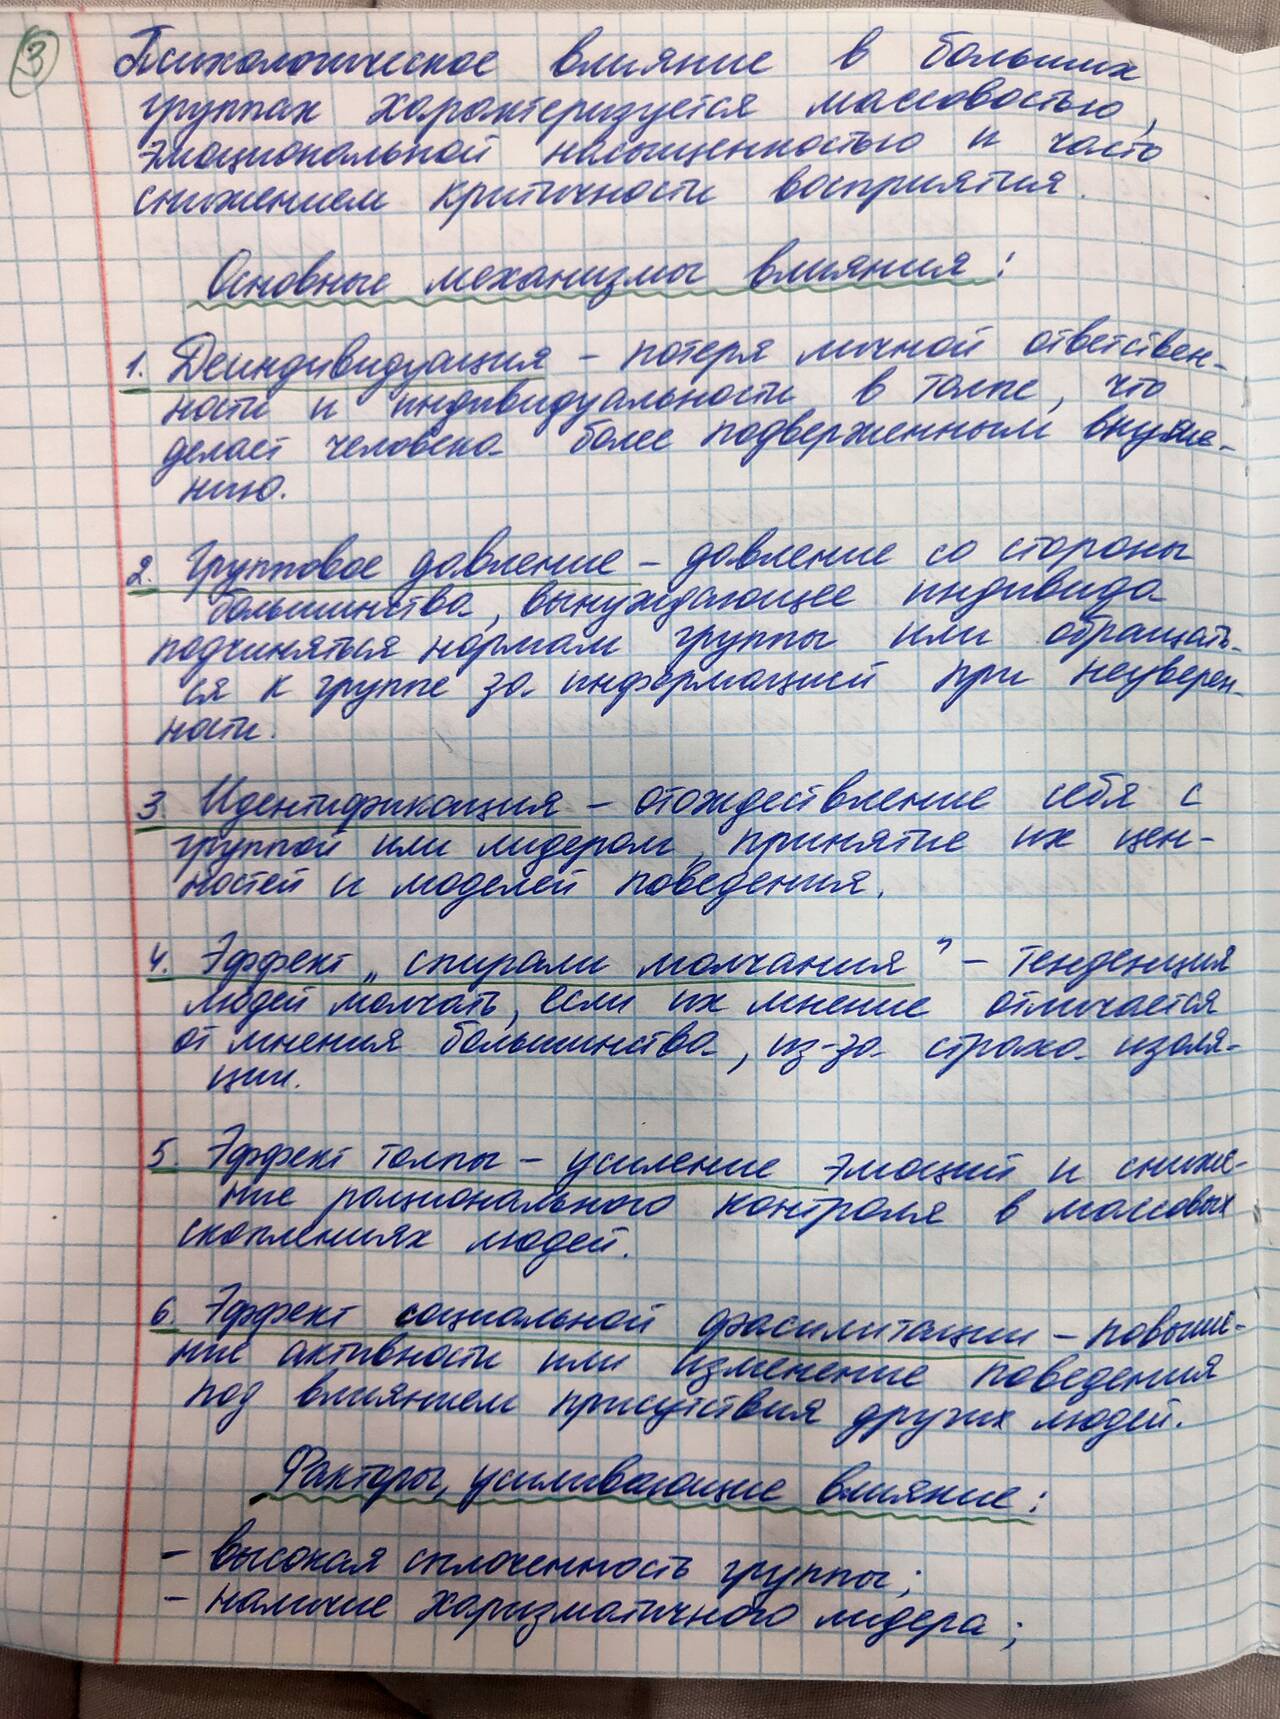 3
Психологическое влияние в больших
группах характеризуется массовостью,
эмоциональной насыщенностью и часто
снижением критичности восприятия.
Основные механизмы влияния:
1. Деиндивидуация - потеря личной ответствен-
ности и индивидуальности в толпе, что
делает человека более подверженным внуше-
нию.
2. Групповое давление - давление со стороны
большинства, вынуждающее индивида
подчиняться нормам группы или обращать-
ся к группе за информацией при неуверен-
ности.
3. Идентификация - отождествление себя с
группой или лидером, принятие их цен-
ностей и моделей поведения.
4. Эффект „спирали молчания" - тенденция
людей молчать, если их мнение отличается
от мнения большинства, из-за страха изоля-
ции.
5. Эффект толпы - усиление эмоций и сниже-
ние рационального контроля в массовых
скоплениях людей.
6. Эффект социальной фасилитации - повыше-
ние активности или изменение поведения
под влиянием присутствия других людей.
Факторы, усиливающие влияние:
- высокая сплоченность группы;
- наличие харизматичного лидера;